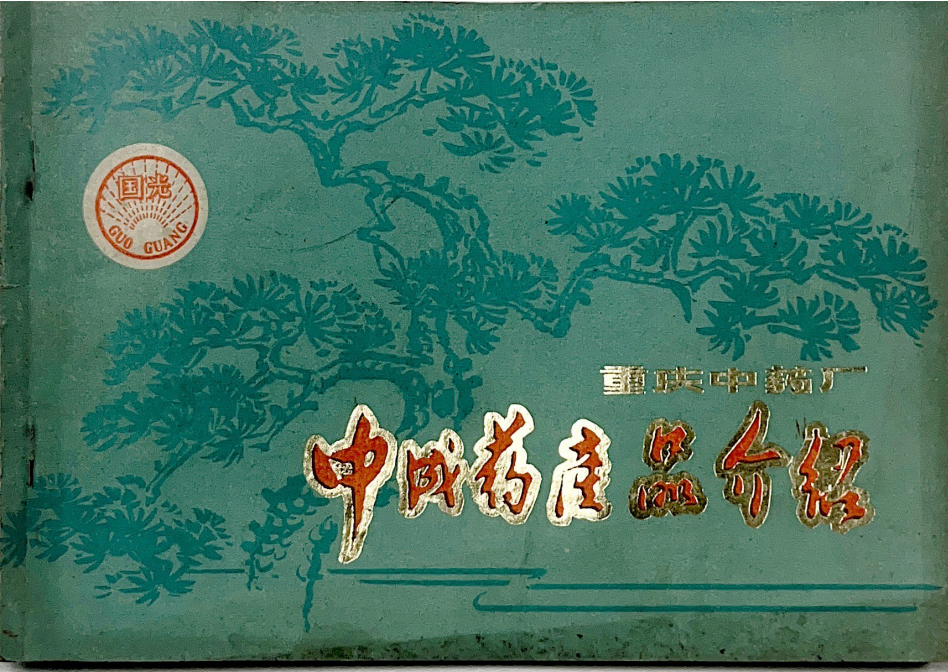 国光
GUO GUANG
重庆中药厂
中成药产品介绍